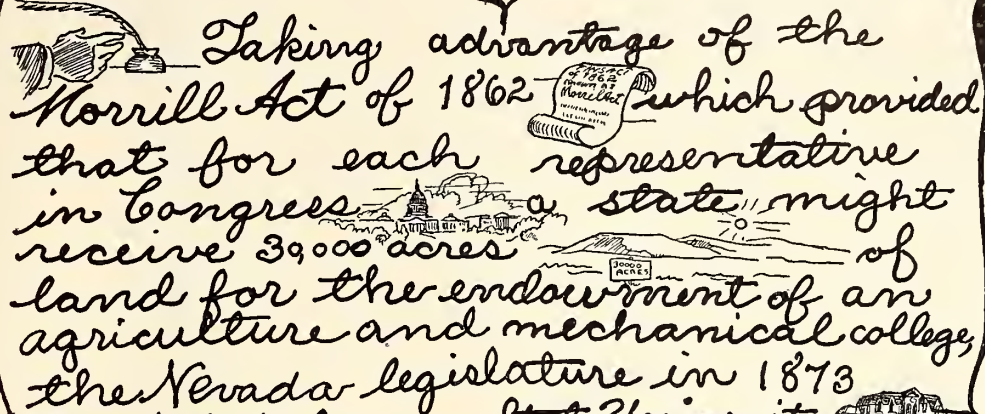 Taking advantage of the
Morrill Act of 1862 which provided
that for each representative
in Congress a state might
receive 30,000 acres of
30000
ACRES
land for the endowment of an
agriculture and mechanical college,
the Nevada legislature in 1873